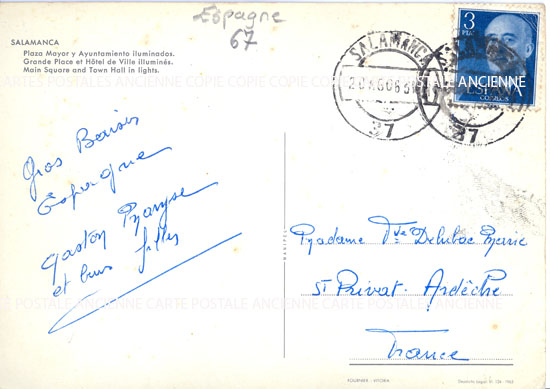 Espagne
67
SALAMANCA
Plaza Mayor y Ayuntamiento iluminados.
Grande Place et Hôtel de Ville illuminés.
Main Square and Town Hall in lights.
SALAMANCA
37
3
PTAS
ESPAÑA
CORREOS
CARTES POSTALES ANCIENNE COPIE COPIE COPIE COPIE COPIE ANCIENNE
Gros Baisers
Espagne
Gaston Maryse
et leurs filles
Madame Vve Delubac Marie
St Privat - Ardèche
France
CARTE POSTALE ANCIENNE CARTE POSTALE ANCIENNE CARTE POSTALE ANCIENNE
FOURNIER - VITORIA